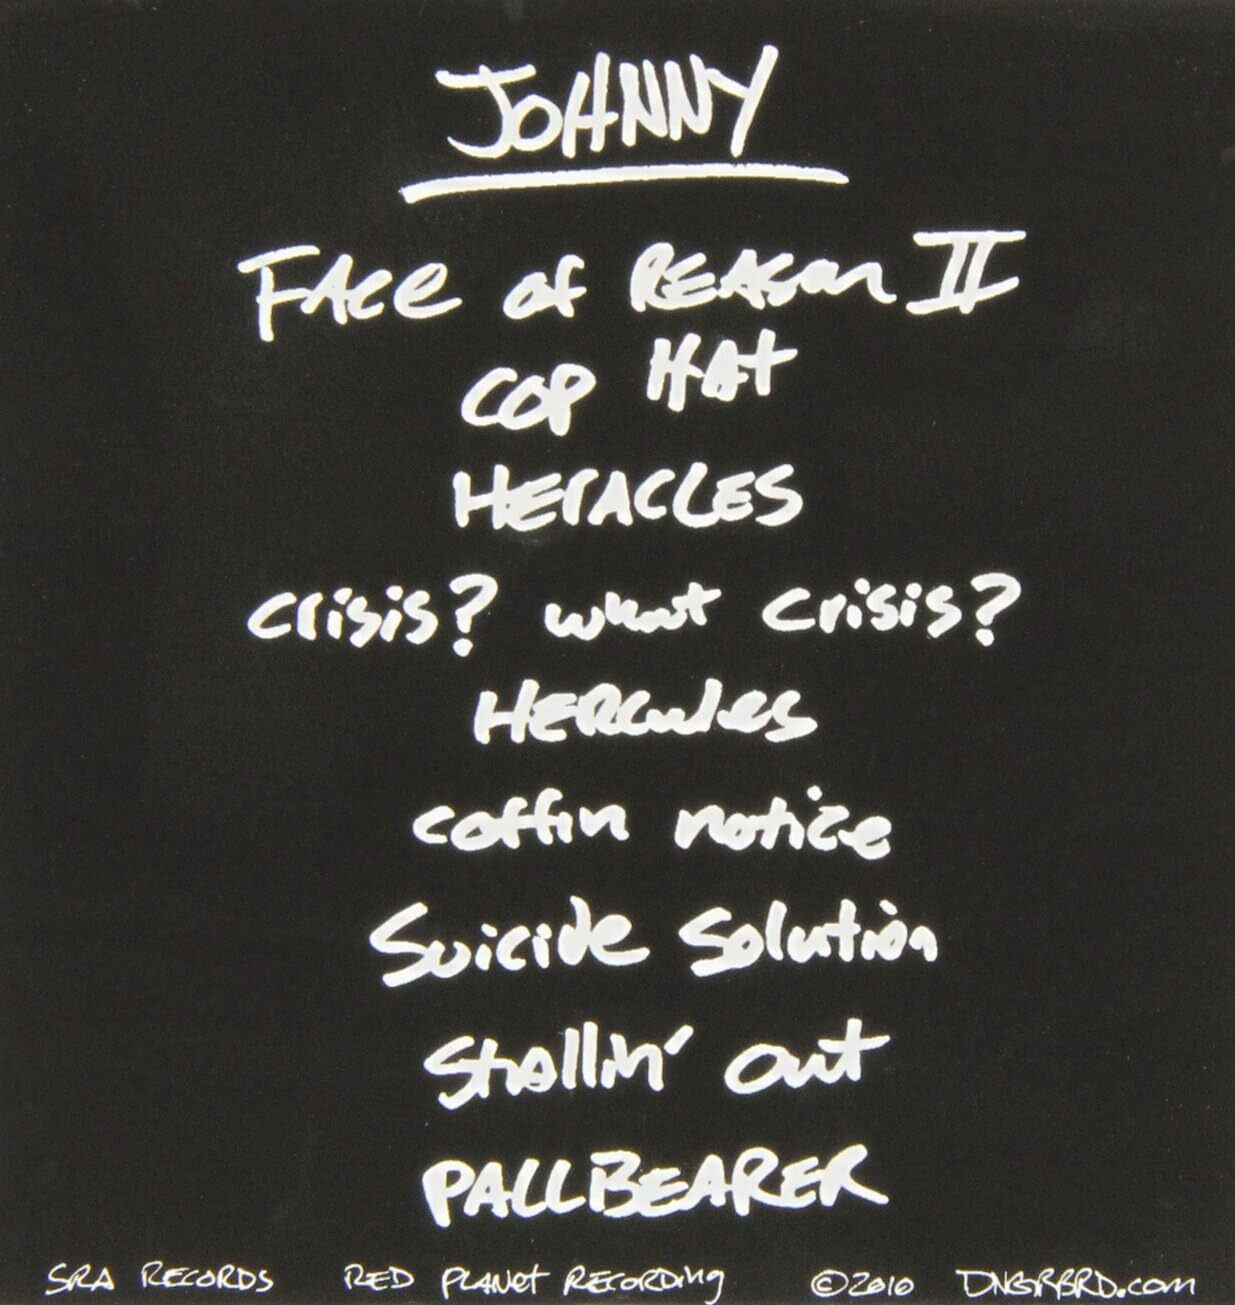 JOHNNY
FACE of REASON II
COP HAT
HERACLES
crisis? what crisis?
HERCULES
coffin notice
Suicide Solution
Stallin' out
PALLBEARER
SRA RECORDS RED PLANET RECORDING ©2010 DNGRBRD.com